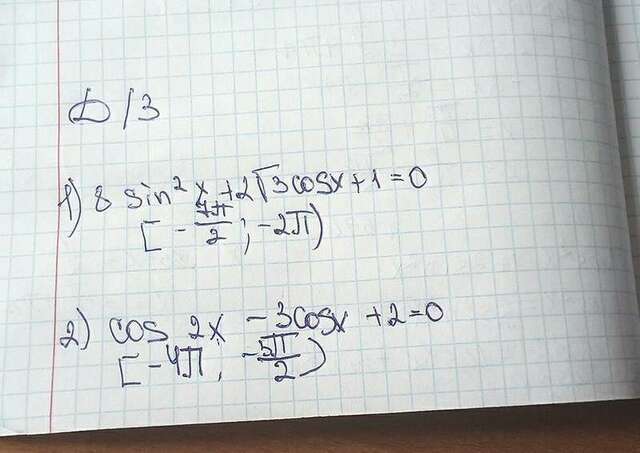 Д/З
1) 8 sin² x + 2√3cosx + 1 = 0
[-7π/2; -2π)
2) cos 2x - 3cosx + 2 = 0
[-4π; -5π/2)